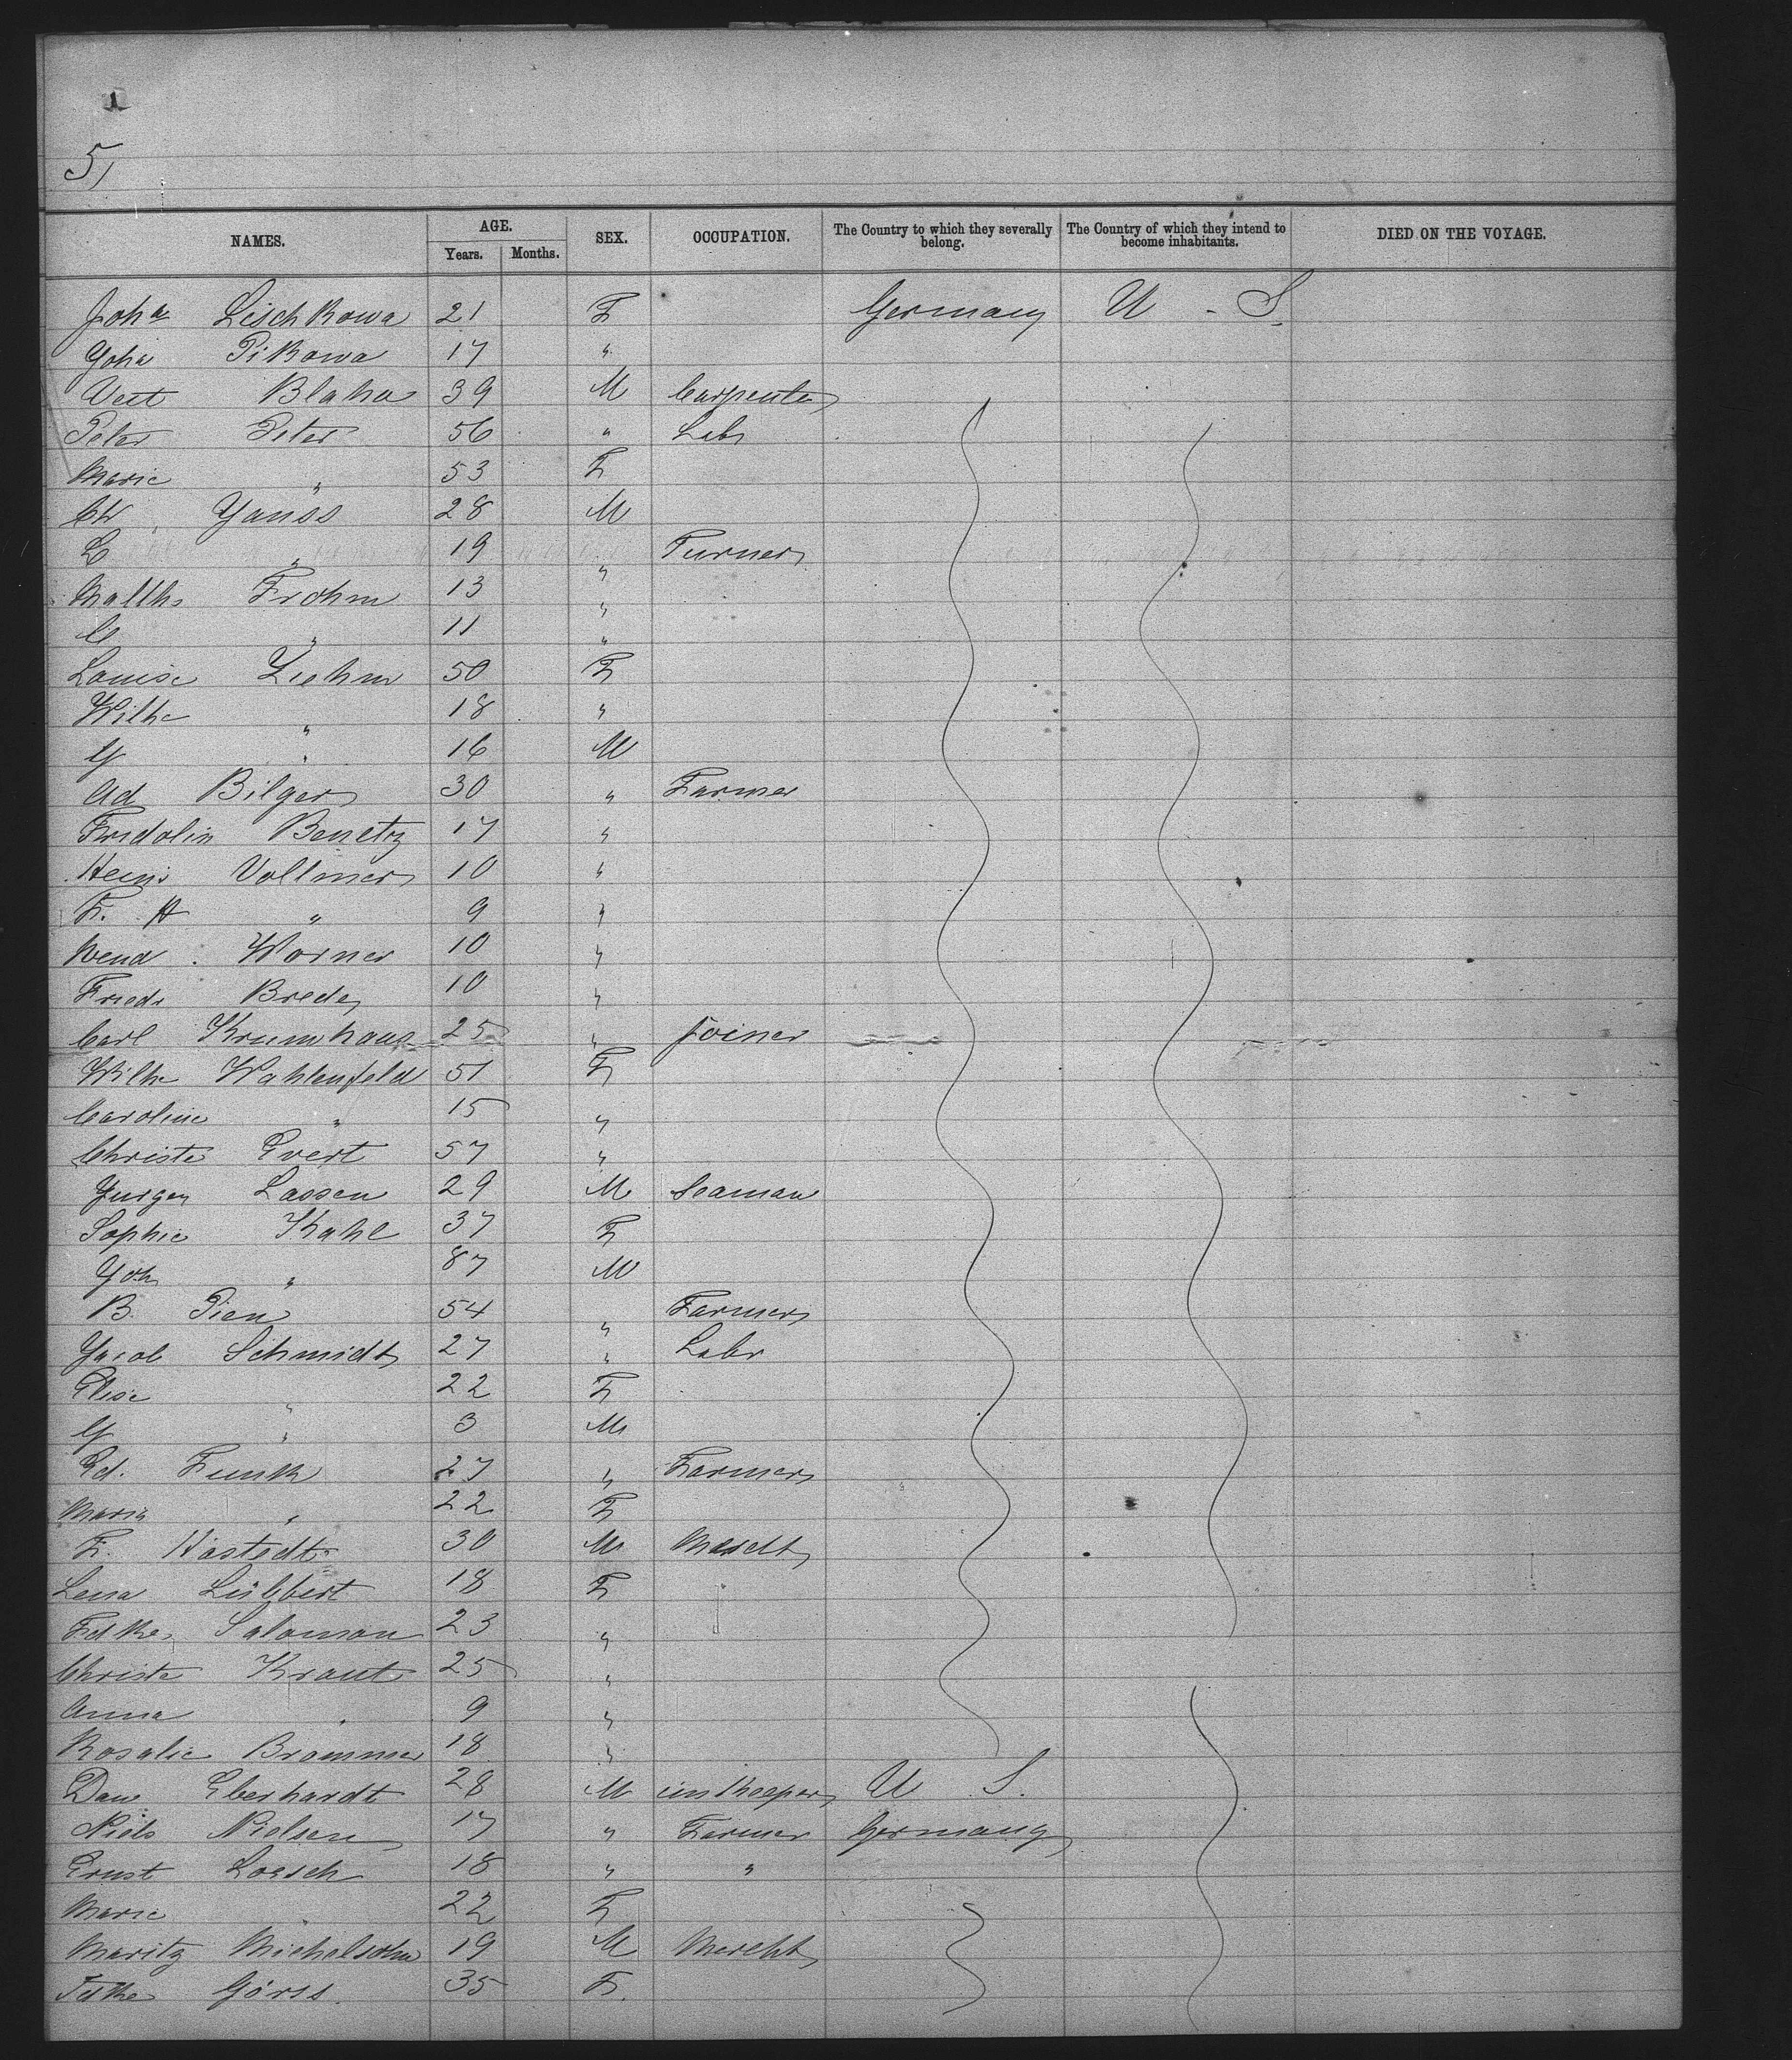 5,
NAMES. AGE. SEX. OCCUPATION. The Country to which they severally belong. The Country of which they intend to become inhabitants. DIED ON THE VOYAGE.
Years. Months.
Joha Lischkowa 21 F Germany U - S
Joha Pikowa 17 "
Veit Blaha 39 M Carpenter
Peter Peter 56 " Labr
Marie " 53 F
Chr Janss 28 M
L " 19 " Turner
Matths Frohm 13 "
C " 11 "
Louise Ziehm 50 F
Wilhe " 18 "
G " 16 M
Ad Bilger 30 " Farmer
Fridolin Benetz 17 "
Heinr Vollmer 10 "
F. A " 9 "
Wend. Worner 10 "
Friedr Brede 10 "
Carl Krumhaus 25 " Joiner
Wilhe Wahlenfeld 51 F
Caroline " 15 "
Christe Evert 57 "
Jurgen Lassen 29 M Seaman
Sophie Kahl 37 F
Joh " 87 M
B. Pien 54 " Farmer
Jacob Schmidt 27 " Labr
Elise " 22 F
G " 3 M
Ed. Funk 27 " Farmer
Maria " 22 F
F. Wastedt 30 M
Lena Lübbert 18 F
Fdke Salomon 23 "
Christe Kraut 25 "
Anna " 9 "
Rosalie Brommer 18 "
Dan Eberhardt 28 M innkeeper U S.
Niels Nielsen 17 " Farmer Germany
Ernst Loesch 18 " "
Marie " 22 F
Moritz Michelsohn 19 M Mercht
Fdke Görss. 35 F.